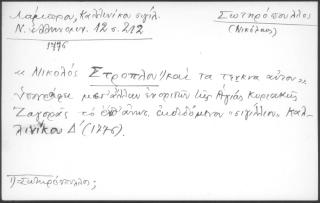 Λάμπρου, Καλλινίκου σιγίλ.
Ν. Ἑλληνομν. 12 σ. 212
1776
Σωτηρόπουλλος
(Νικόλαος)
« Νικολός Στροπλου¹⁾ καὶ τα τεκνα αυτου »
ὑπογράφει μετ' ἄλλων ἐνοριτῶν τῆς Ἁγιάς Κυριακῆς
Ζαγορᾶς τὸ ἐκδιδόμενον "σιγίλλιον" Καλ-
λινίκου Δ' (1776).
1) = Σωτηρόπουλλος;